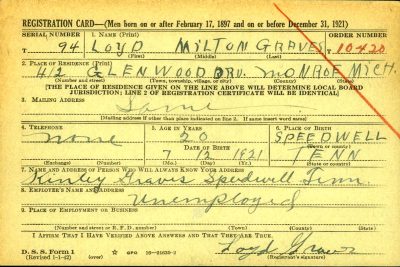 REGISTRATION CARD—(Men born on or after February 17, 1897 and on or before December 31, 1921)
SERIAL NUMBER 1. NAME (Print) ORDER NUMBER
T 94 LOYD MILTON GRAVES 10420
(First) (Middle) (Last)
2. PLACE OF RESIDENCE (Print)
412 GLENWOOD DRV. MONROE MICH.
(Number and street) (Town, township, village, or city) (County) (State)
[THE PLACE OF RESIDENCE GIVEN ON THE LINE ABOVE WILL DETERMINE LOCAL BOARD
JURISDICTION; LINE 2 OF REGISTRATION CERTIFICATE WILL BE IDENTICAL]
3. MAILING ADDRESS
Same
[Mailing address if other than place indicated on line 2. If same insert word same]
4. TELEPHONE 5. AGE IN YEARS 6. PLACE OF BIRTH
none 20 SPEEDWELL
DATE OF BIRTH (Town or county)
7 12 1921 TENN
(Exchange) (Number) (Mo.) (Day) (Yr.) (State or country)
7. NAME AND ADDRESS OF PERSON WHO WILL ALWAYS KNOW YOUR ADDRESS
Graves Speedwell Tenn
8. EMPLOYER'S NAME AND ADDRESS
Unemployed
9. PLACE OF EMPLOYMENT OR BUSINESS
(Number and street or R. F. D. number) (Town) (County) (State)
I AFFIRM THAT I HAVE VERIFIED ABOVE ANSWERS AND THAT THEY ARE TRUE.
D. S. S. Form 1 GPO Loyd Graves
(Revised 1-1-42) (over) (Registrant's signature)